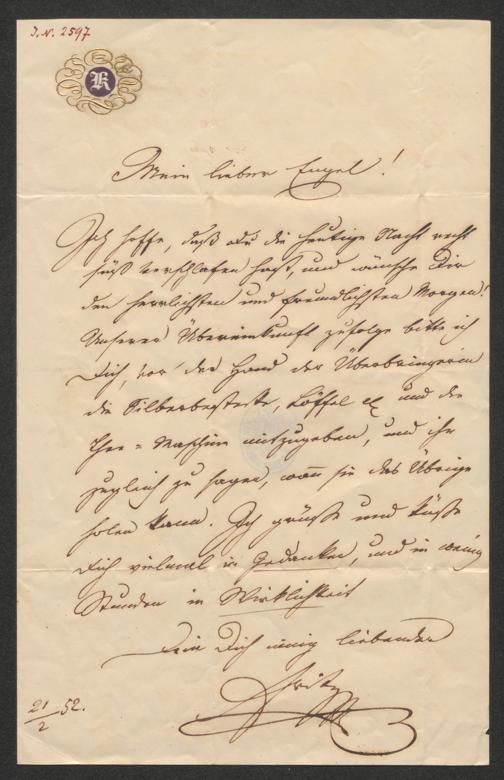 J.N. 2597
K
Mein lieber Engel!
Ich hoffe, daß du die heutige Nacht recht
süß verschlafen hast, und wünsche Dir
den herrlichsten und freundlichsten Morgen!
Unserer Übereinkunft zufolge bitte ich
Dich, vor der Hand der Überbringerin
die Silberbestecke, Löffel und die
Thee-Maschine mitzugeben, und ihr
zugleich zu sagen, wann sie das Übrige
holen kann. Ich grüße und küsse
Dich vielmal in Gedanken, und in wenig
Stunden in Wirklichkeit
Dein Dich innig liebender
Fritz
21/2 52.